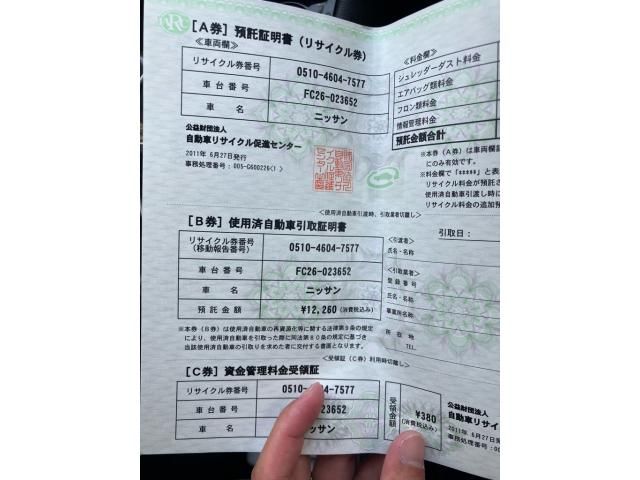 [A券] 預託証明書(リサイクル券)
≪車両欄≫
リサイクル券番号 0510-4604-7577
車台番号 FC26-023652
車名 ニッサン
公益財団法人
自動車リサイクル促進センター
2011年 6月27日発行
事務処理番号:005-G600226<1>
≪料金欄≫
シュレッダーダスト料金
エアバッグ類料金
フロン類料金
情報管理料金
預託金額合計
※本券(A券)は車両欄記
にのみ有効です。
※料金欄で「*****」と表
リサイクル料金が預託さ
使用済自動車引渡し時に
リサイクル料金の追加預
<使用済自動車引渡時、引取業者切離し>
[B券] 使用済自動車引取証明書
リサイクル券番号
(移動報告番号) 0510-4604-7577
車台番号 FC26-023652
車名 ニッサン
預託金額 ¥12,260(消費税込み)
※本券(B券)は使用済自動車の再資源化等に関する法律第9条の規定
により、使用済自動車を引取った際に同法第80条の規定に基づき
当該使用済自動車の引取りを求めた者に交付する書面となります。
引取日:
<引渡者>
氏名・名称
<引取業者>
登録番号
氏名・名称
事業所名称
所在地
TEL.
<受領証(C券)利用時切離し>
[C券] 資金管理料金受領証
リサイクル券番号 0510-4604-7577
車台番号 023652
車名 ニッサン
受領金額
¥380
(消費税込み)
公益財団法人
自動車リサイ
2011年 6月27日発
事務処理番号:00